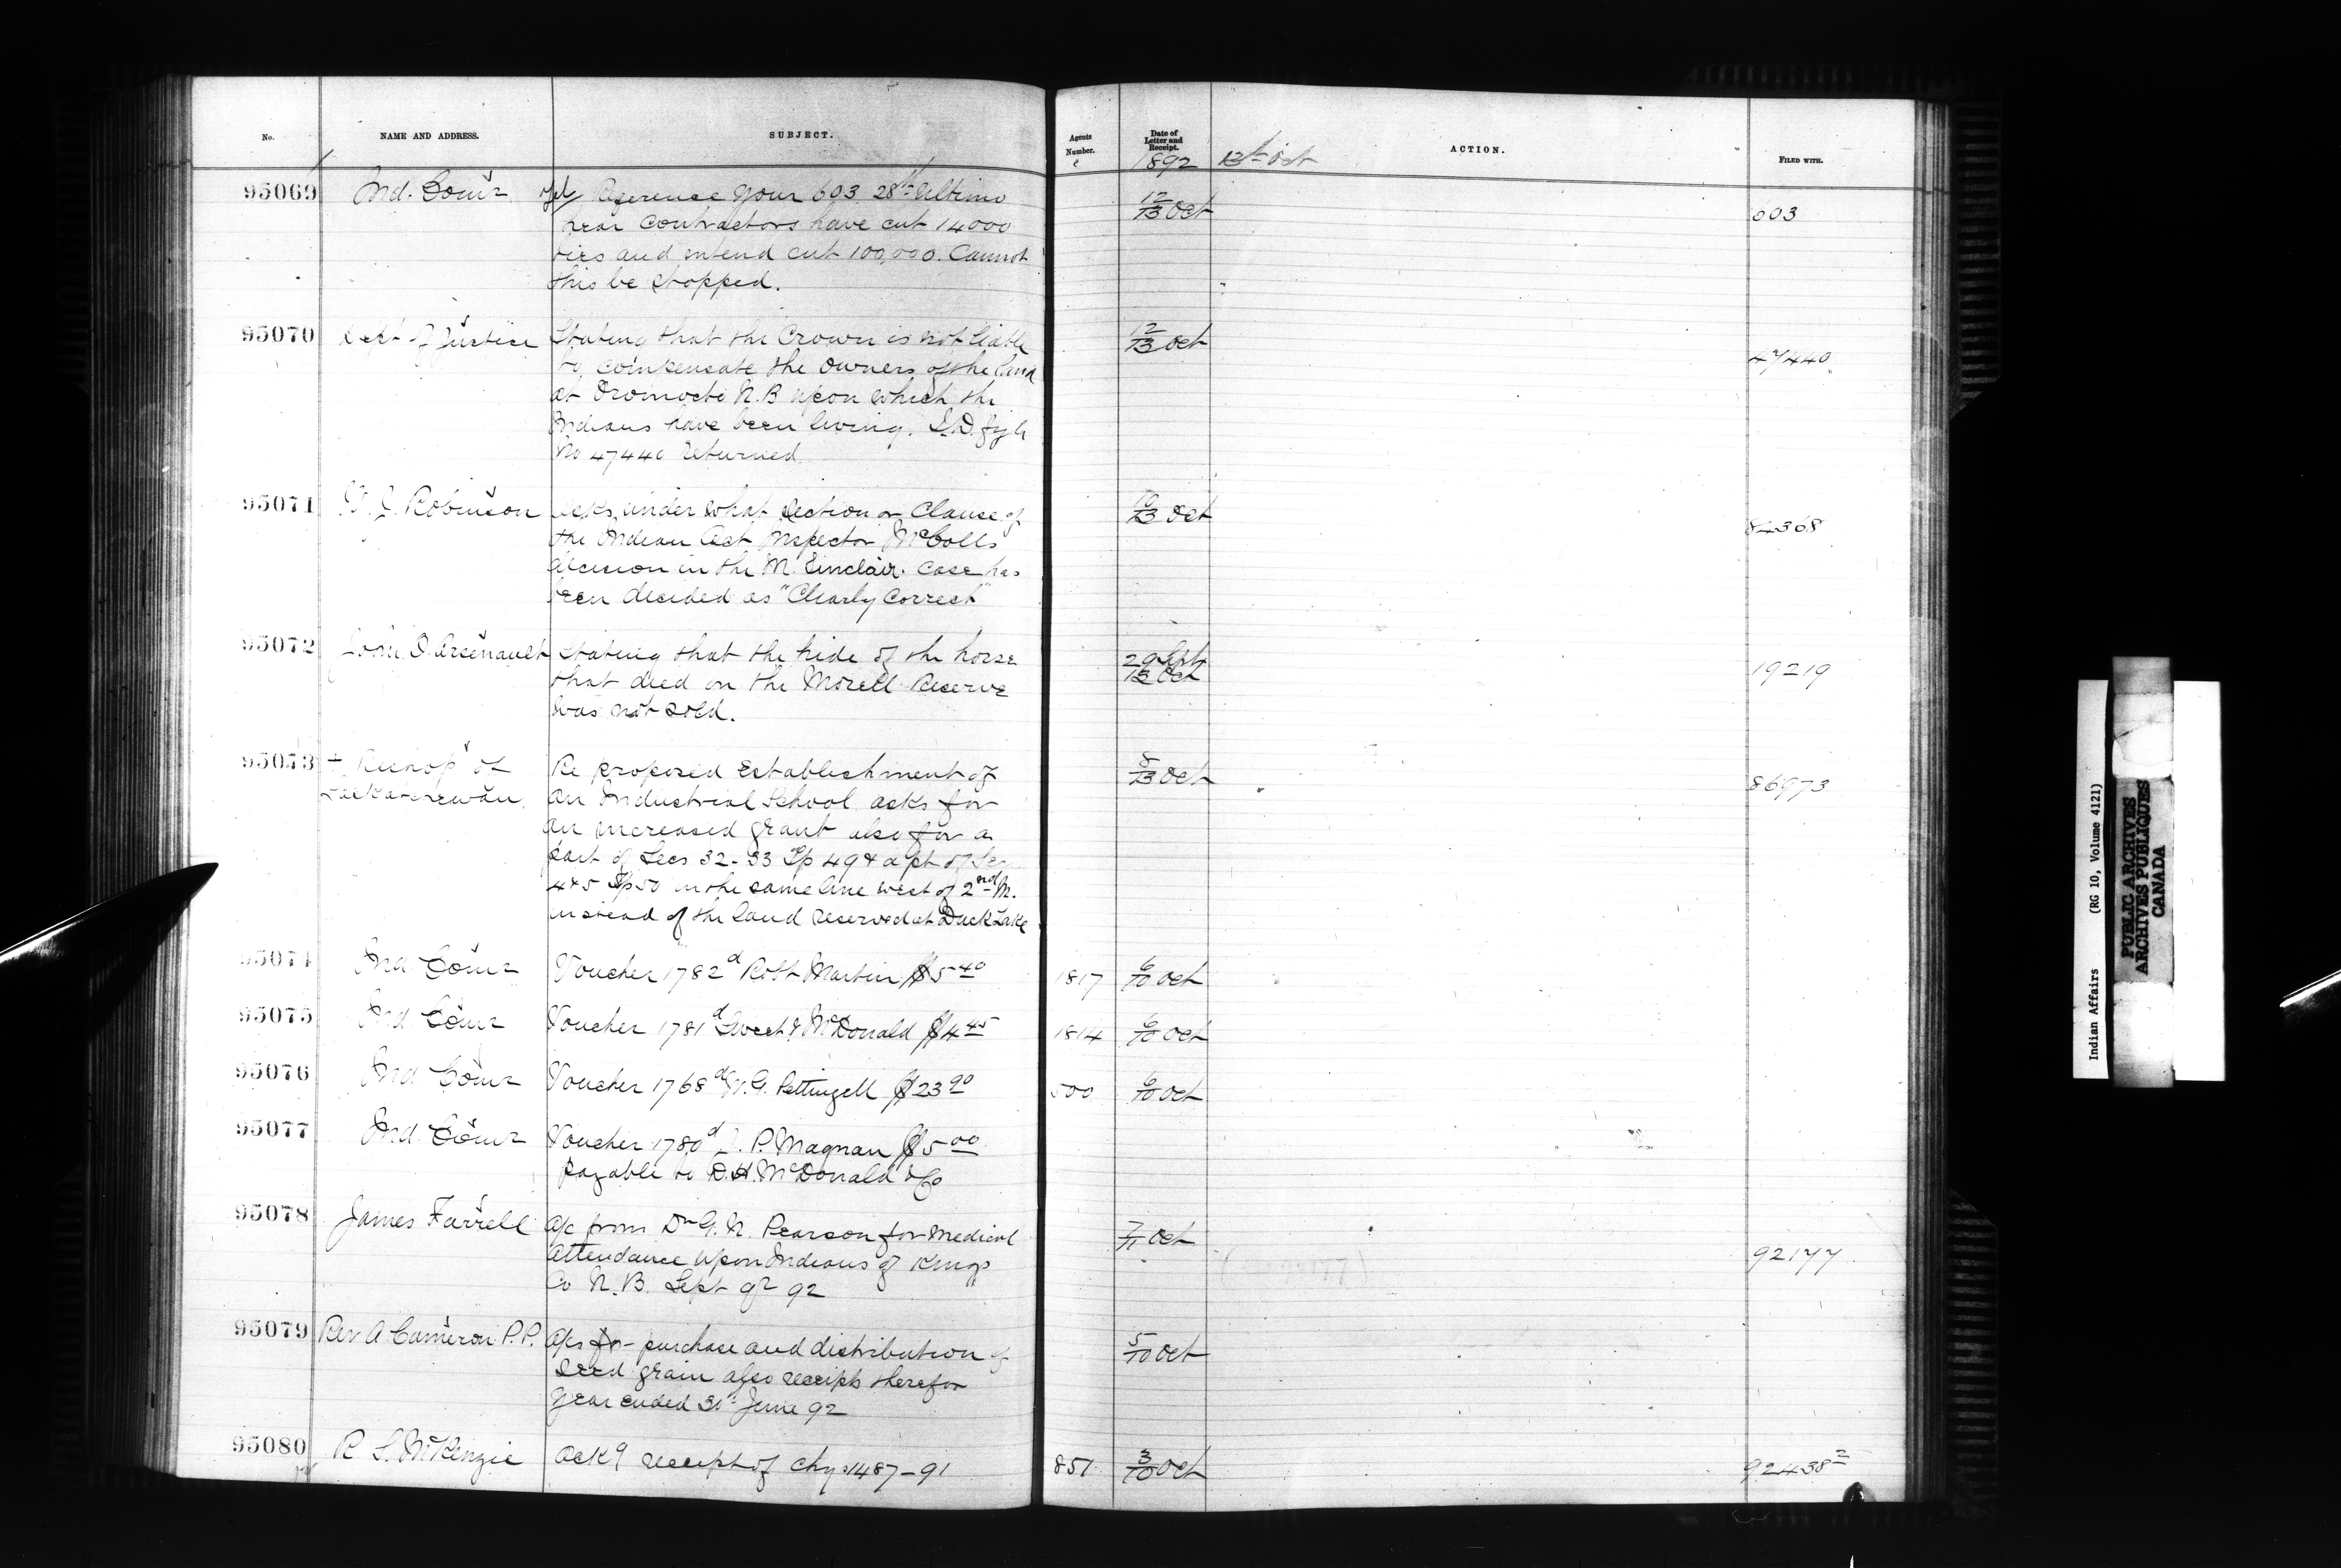 No. NAME AND ADDRESS. SUBJECT. Agents Number. Date of Letter and Receipt. ACTION. FILED WITH.
1892 13th Oct
95069 Ind. Comr Reference your 603 28th Ultimo 12/13 Oct 603
hear Contractors have cut 14000
ties and intend cut 100,000. Cannot
this be stopped.
95070 Dept of Justice Stating that the Crown is not liable 12/13 Oct 47440
to compensate the owners of the land
at Oromocto N.B upon which the
Indians have been living. I.D. file
No 47440 returned
95071 Robinson Asks under what section or Clause of 10/13 Oct 84368
the Indian Act Inspector McColls
decision in the Mc Sinclair case has
been decided as "Clearly Correct"
95072 John O. Arsenault Stating that the hide of the horse 29 Sept 13 Oct 19219
that died on the Morell Reserve
was not sold.
95073 + Bishop of Saskatchewan Re proposed Establishment of 8/13 Oct 86973
an Industrial School asks for
an increased grant also for a
part of Secs 32-33 Tp 49 & a pt of Sec
4&5 Tp 50 in the same line west of 2nd M.
instead of the land reserved at Duck Lake
95074 Ind Comr Voucher 1782d Robt Martin $5.40 1817 6/10 Oct
95075 Ind Comr Voucher 1781d Sweet & McDonald $4.45 1814 6/10 Oct
95076 Ind. Comr Voucher 1768d W.G. Pettingell $23.90 500 6/10 Oct
95077 Ind. Comr Voucher 1780d J. P. Magnan $5.00
payable to D.H. McDonald & Co
95078 James Farrell A/c from Dr G. N. Pearson for Medical 7/11 Oct 92177
Attendance upon Indians of Kings
Co N.B. Sept qr 92
95079 Rev A Cameron P.P. A/cs for purchase and distribution of 5/10 Oct
seed grain also receipts therefor
year ended 30th June 92
95080 R S. McKenzie Ackg receipt of chqs 1487-91 851 3/10 Oct 92438
Indian Affairs (RG 10, Volume 4121)
PUBLIC ARCHIVES
ARCHIVES PUBLIQUES
CANADA